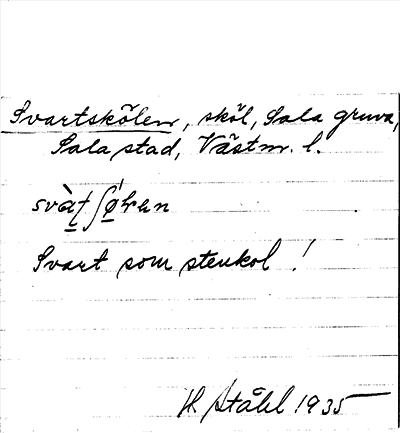 Svartskölen, sköl, Sala gruva,
Sala stad, Västm. l.
Svart som stenkol !
H Ståhl 1935